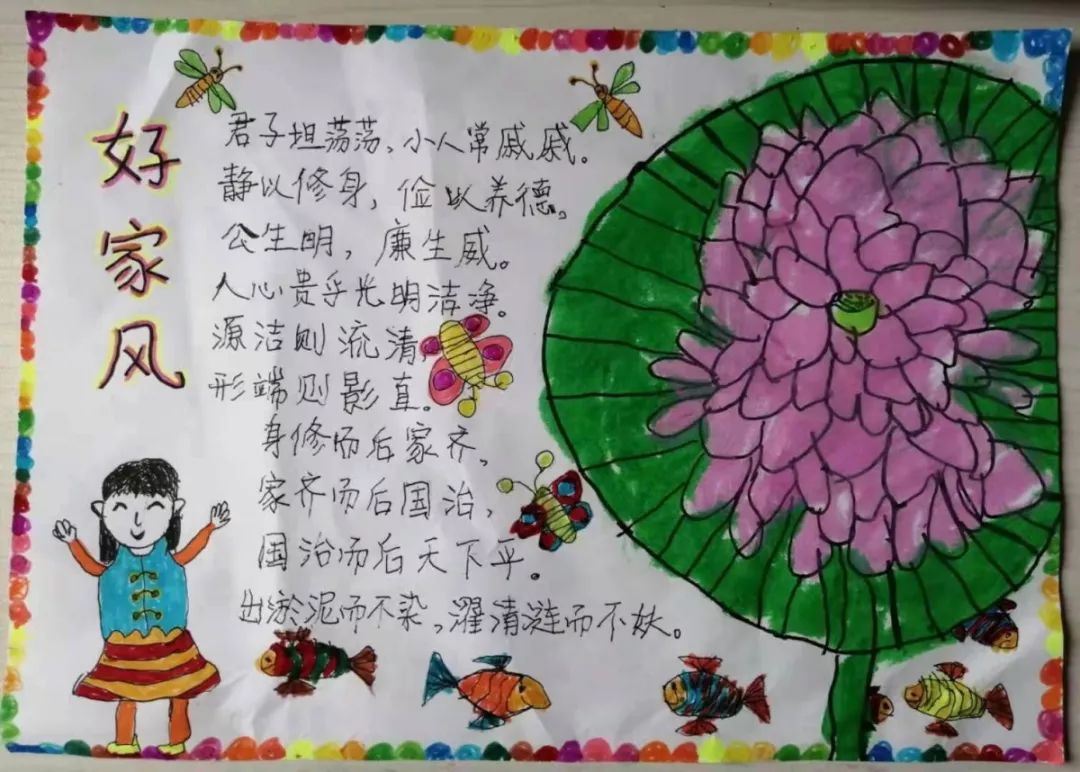 好家风
君子坦荡荡，小人常戚戚。
静以修身，俭以养德。
公生明，廉生威。
人心贵乎光明洁净。
源洁则流清，
形端则影直。
身修而后家齐，
家齐而后国治，
国治而后天下平。
出淤泥而不染，濯清涟而不妖。